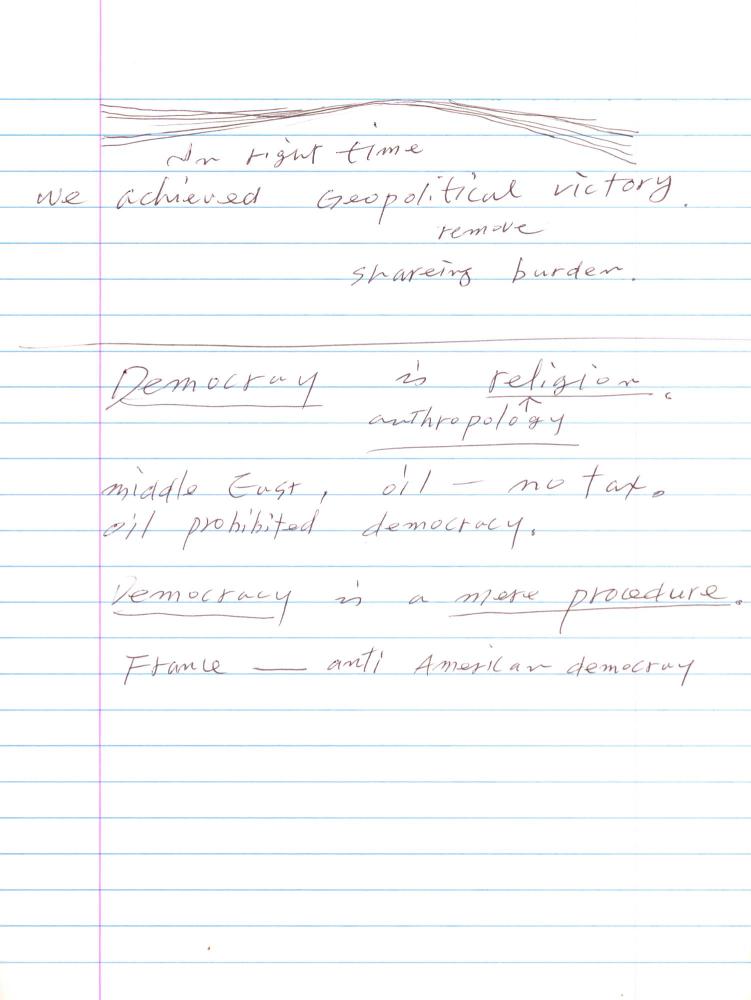 In right time
we achieved Geopolitical victory.
remove
shareing burden.
Democray is religion.
anthropology
middle East, oil — no tax.
oil prohibited democracy.
Democracy is a mere procedure.
France — anti American democray